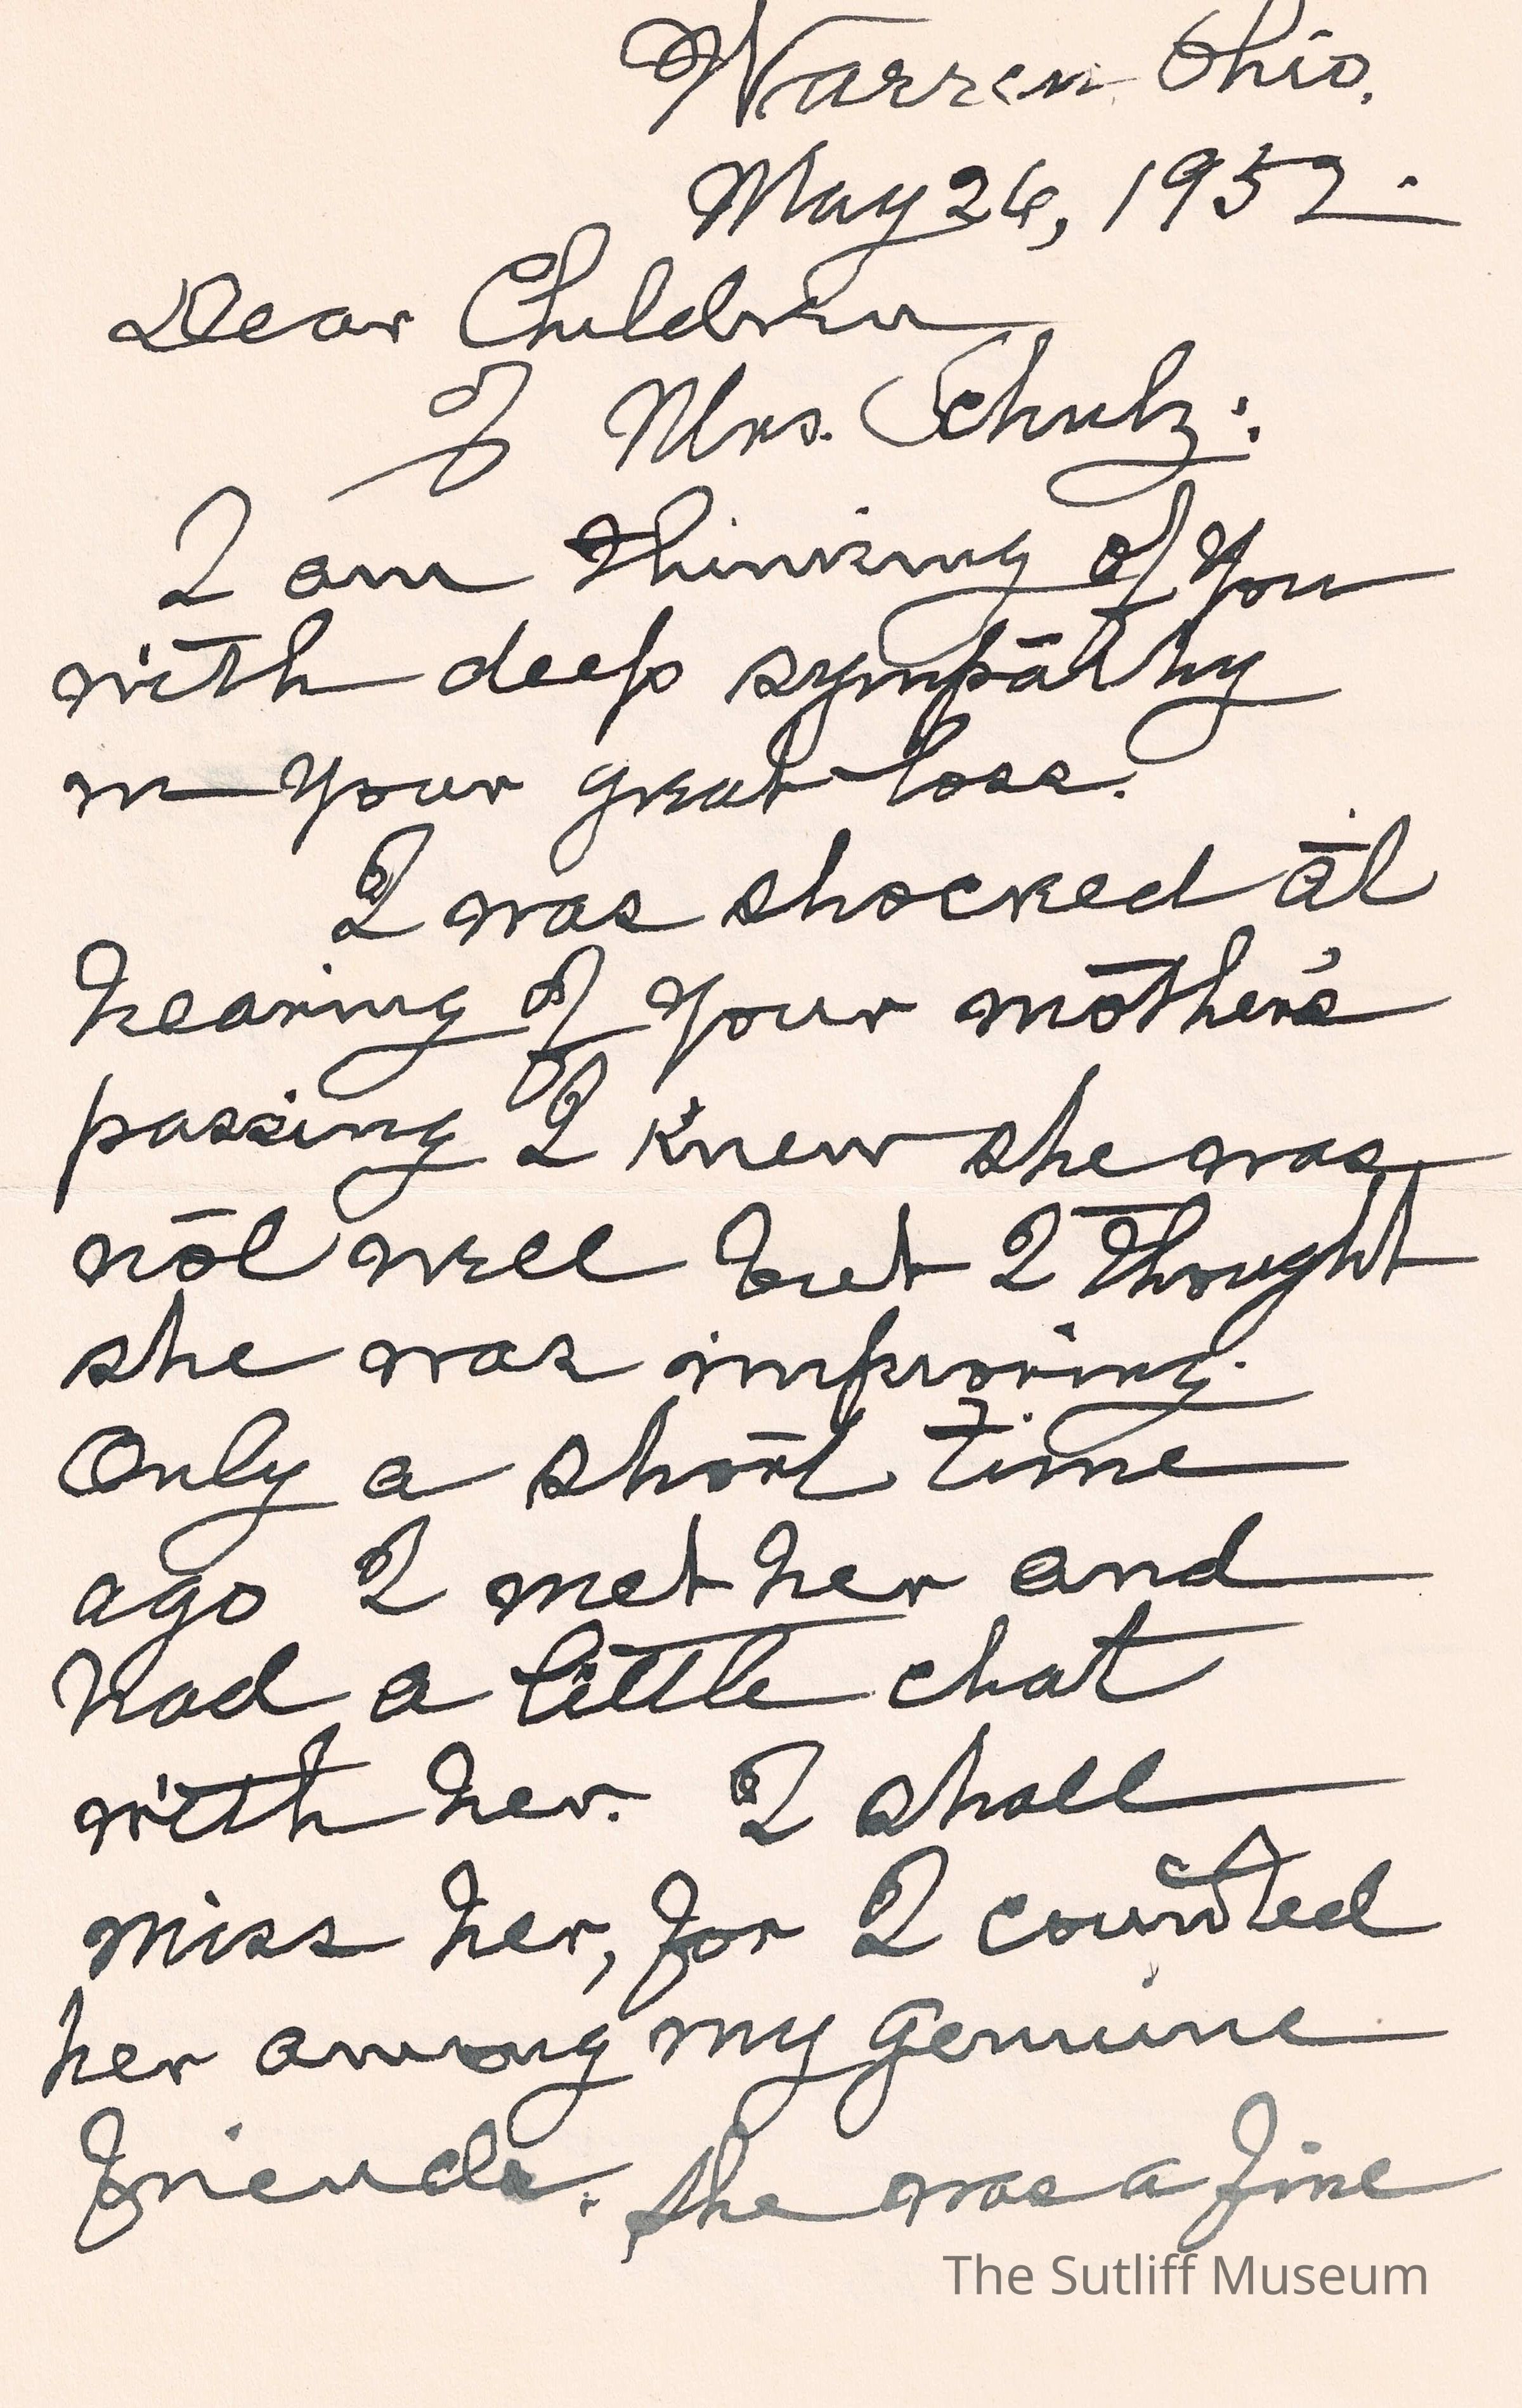 Warren Ohio.
May 26, 1952.
Dear Children
of Mrs. Schulz:
I am thinking of you
with deep sympathy
in your great loss.
I was shocked at
hearing of your mother's
passing I knew she was
not well but I thought
she was improving.
Only a short time
ago I met her and
had a little chat
with her. I shall
miss her, for I counted
her among my genuine
friends. She was a fine
The Sutliff Museum